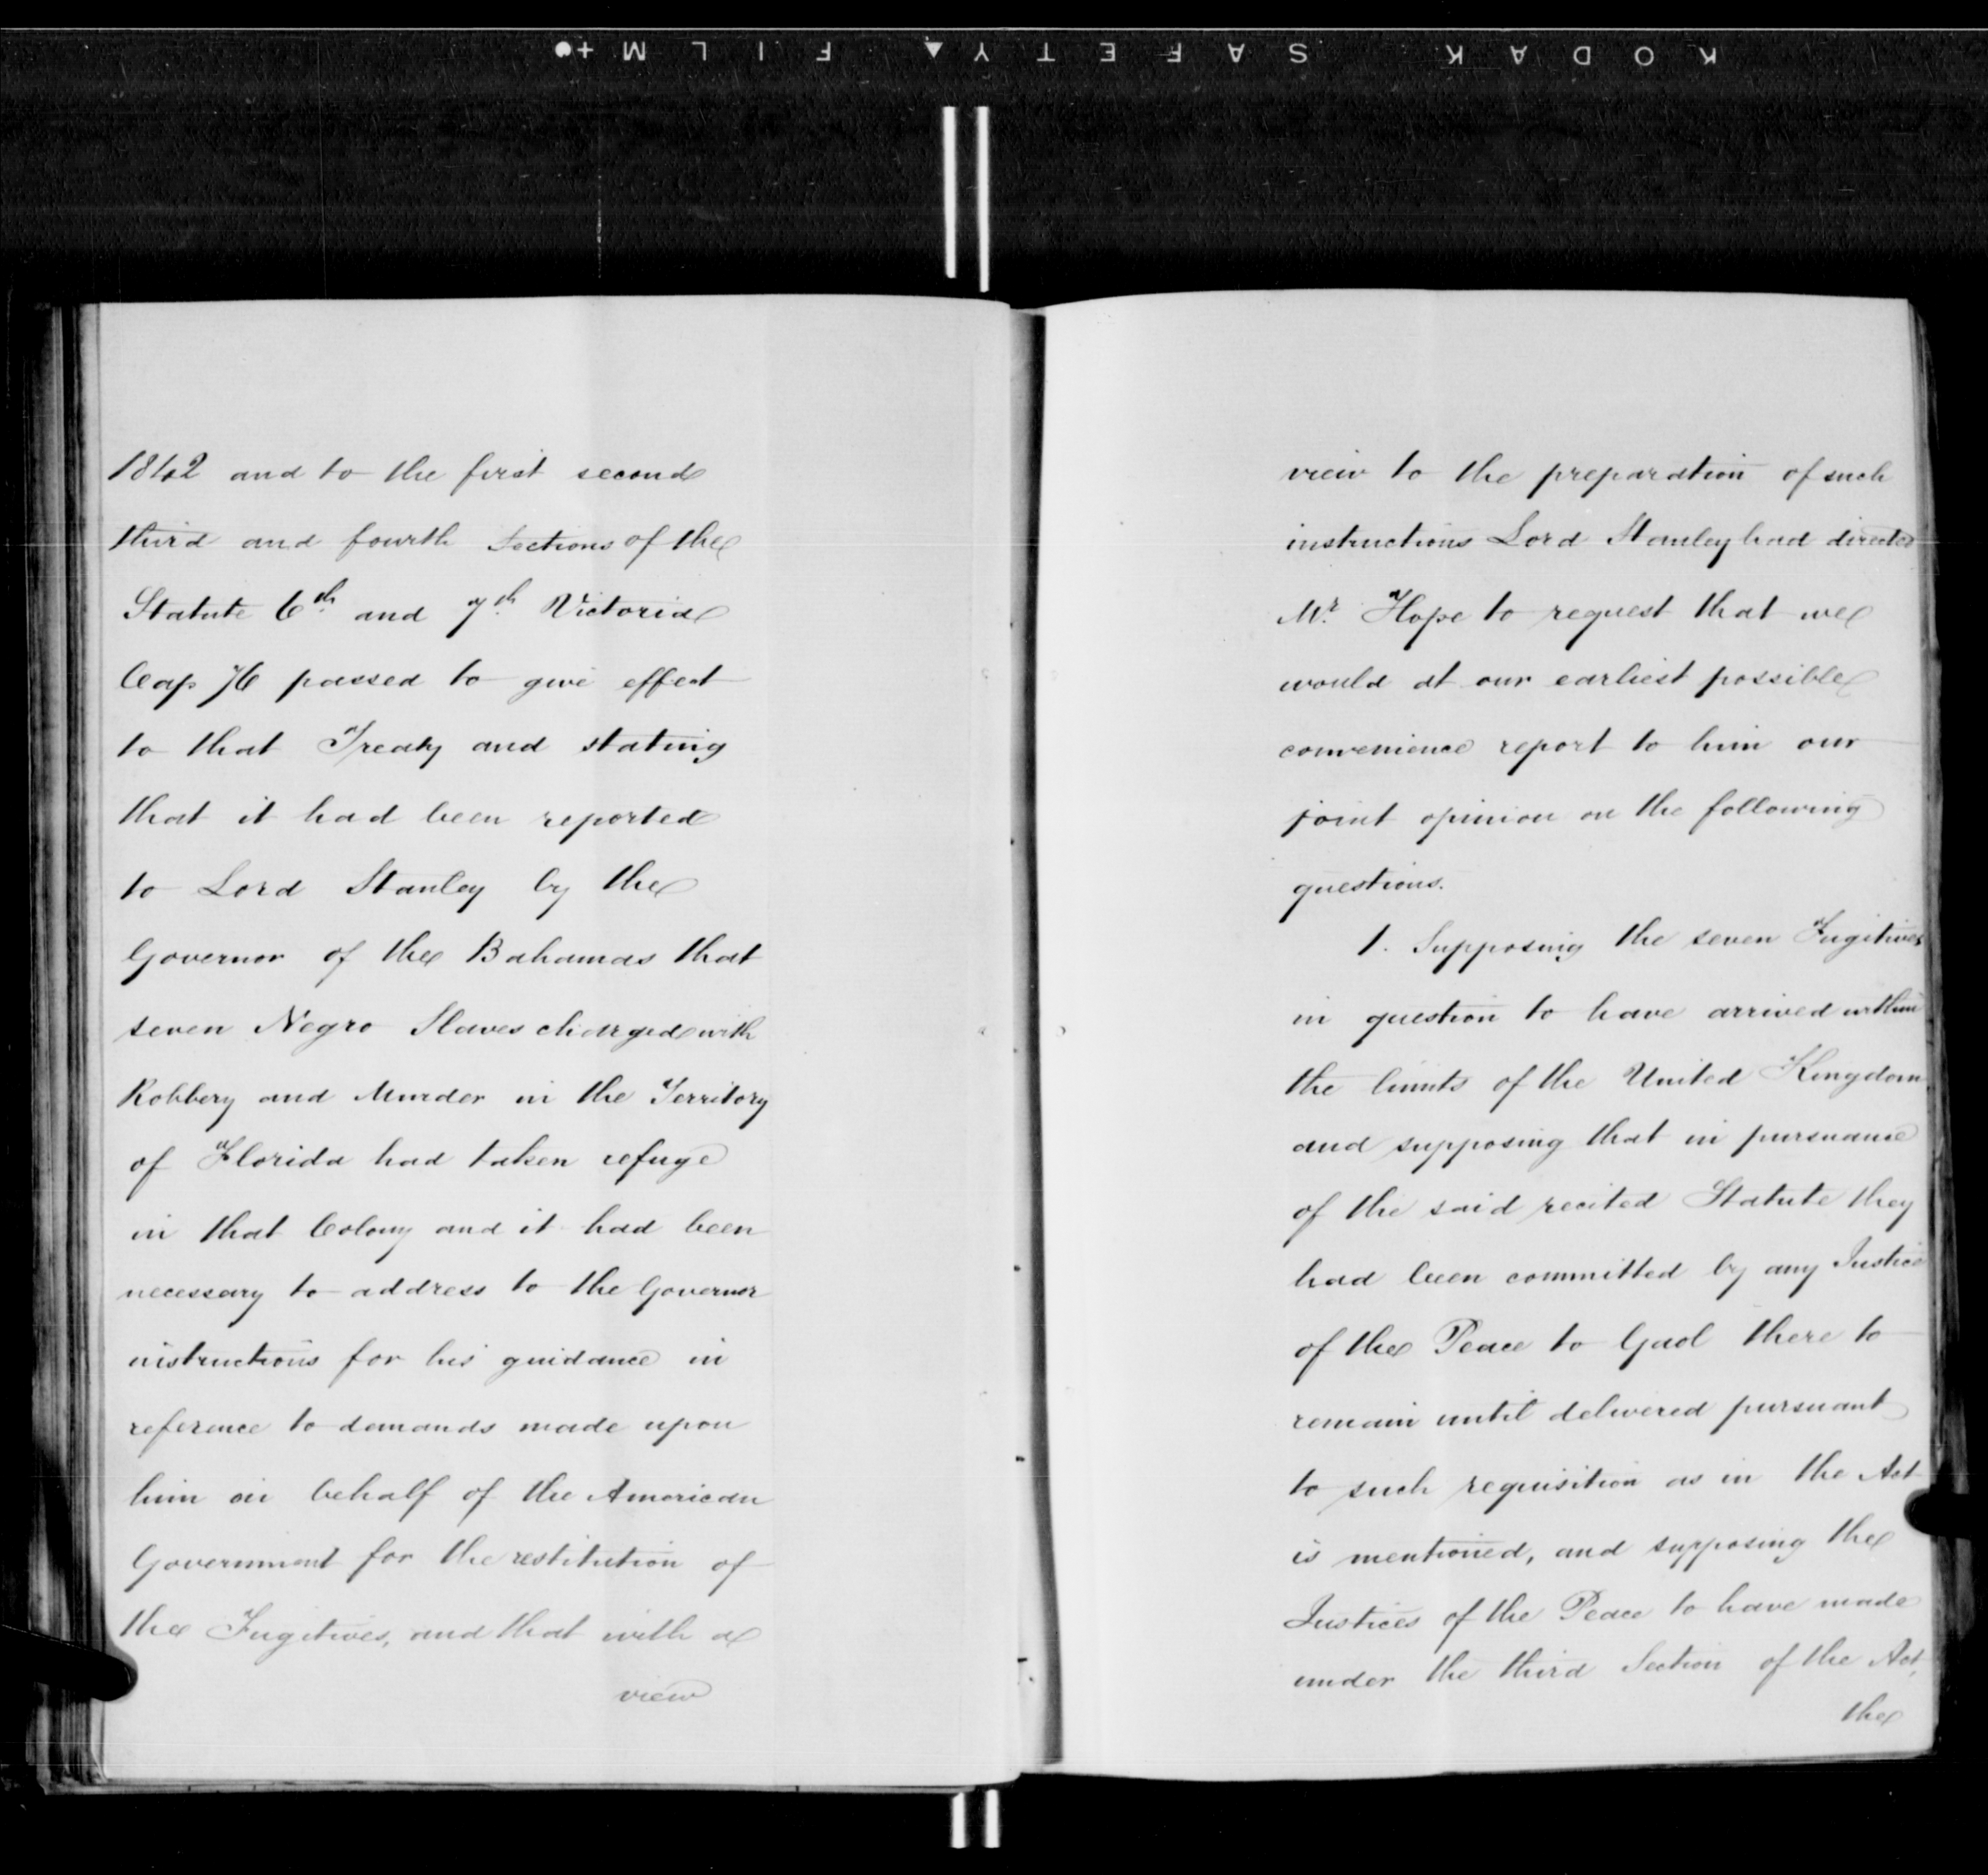 KODAK SAFETY FILM
1842 and to the first second
third and fourth Sections of the
Statute 6th and 7th Victoria
Cap 76 passed to give effect
to that Treaty and stating
that it had been reported
to Lord Stanley by the
Governor of the Bahamas that
seven Negro Slaves charged with
Robbery and Murder in the Territory
of Florida had taken refuge
in that Colony and it had been
necessary to address to the Governor
instructions for his guidance in
reference to demands made upon
him on behalf of the American
Government for the restitution of
the Fugitives, and that with a
view
view to the preparation of such
instructions Lord Stanley had directed
Mr. Hope to request that we
would at our earliest possible
convenience report to him our
joint opinion on the following
questions.
1. Supposing the seven Fugitives
in question to have arrived within
the limits of the United Kingdom
and supposing that in pursuance
of the said recited Statute they
had been committed by any Justice
of the Peace to Gaol there to
remain until delivered pursuant
to such requisition as in the Act
is mentioned, and supposing the
Justices of the Peace to have made
under the third Section of the Act,
the